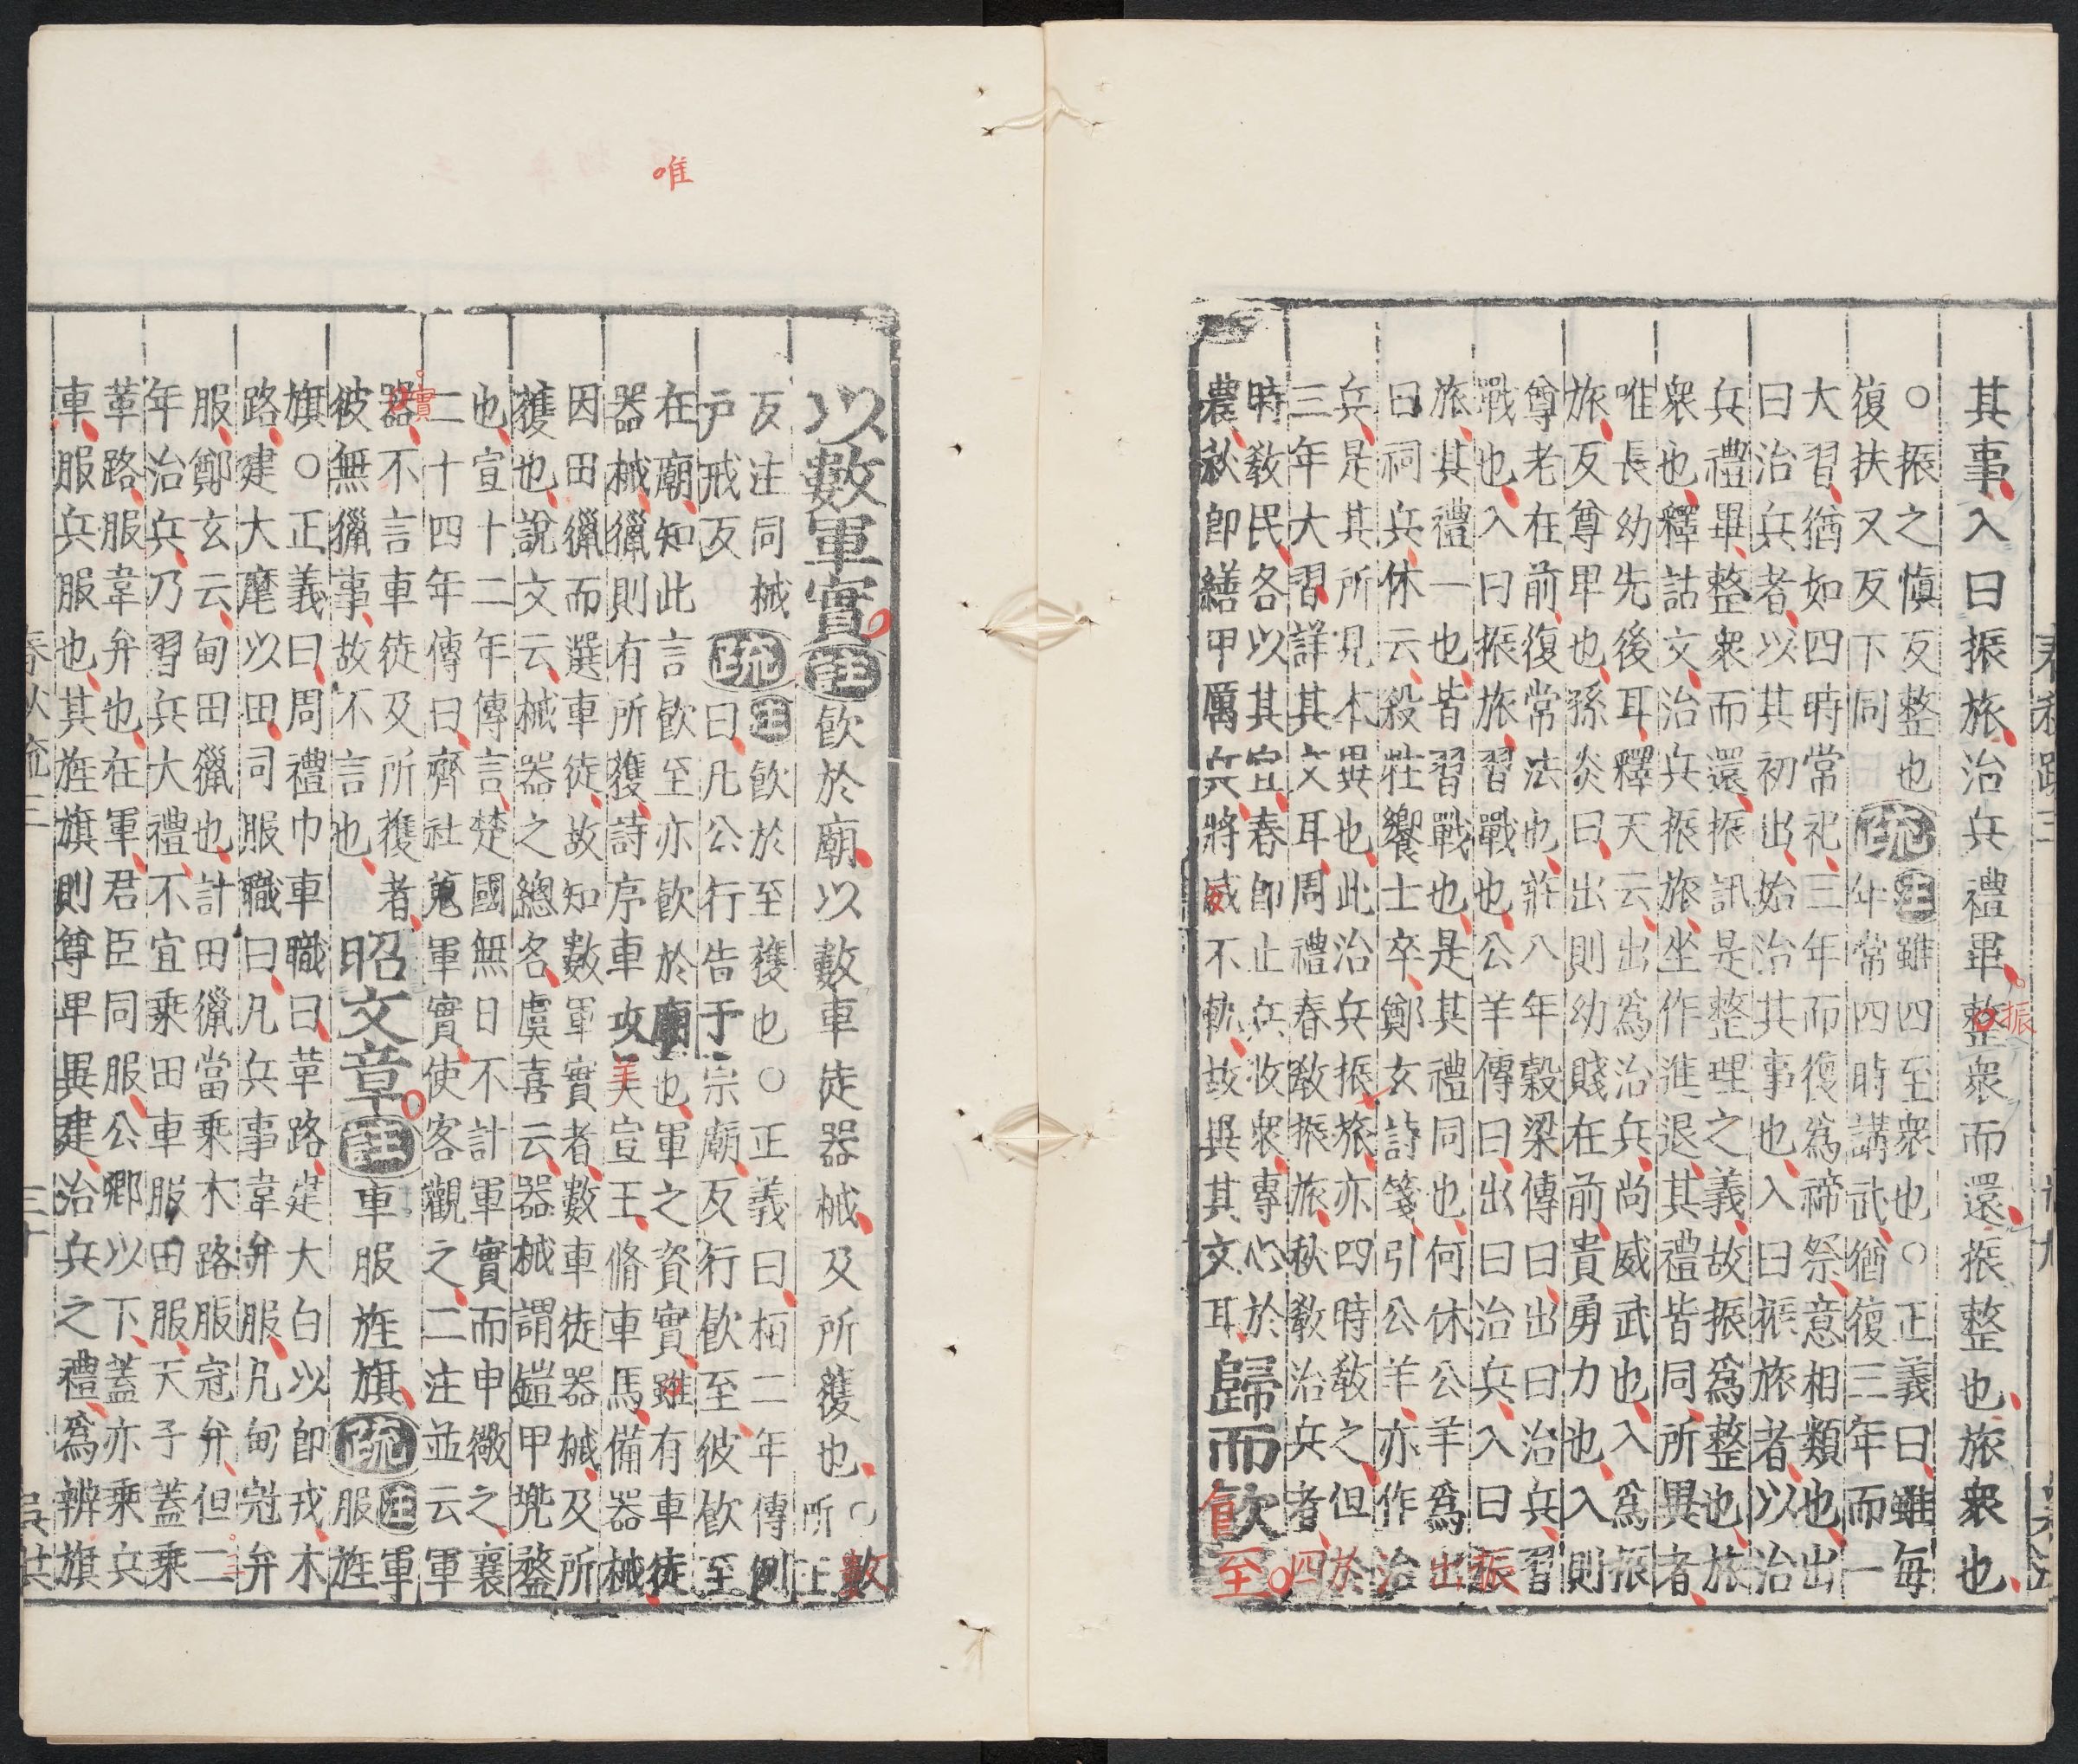 其事入曰振旅治兵禮畢整衆而還振整也旅衆也
振
○振之愼反整也疏注雖四至衆也○正義曰雖每
復扶又反下同年常四時講武猶復三年而一
大習猶如四時常祀三年而復爲禘祭意相類也出
曰治兵者以其初出始治其事也入曰振旅者以治
兵禮畢整衆而還振訊是整理之義故振爲整也旅
衆也釋詁文治兵振旅坐作進退其禮皆同所異者
唯長幼先後耳釋天云出爲治兵尚威武也入爲振
旅反尊卑也孫炎曰出則幼賤在前貴勇力也入則
尊老在前復常法也莊八年穀梁傳曰出曰治兵習
戰也入曰振旅習戰也公羊傳曰出曰治兵入曰振
旅其禮一也皆習戰也是其禮同也何休公羊爲出
曰祠兵休云殺牲饗士卒鄭玄詩箋引公羊亦作治
兵是其所見本異也此治兵振旅亦四時教之但於
三年大習詳其文耳周禮春教振旅秋教治兵者四
時教民各以其宜春即止兵收衆專心於
農秋即繕甲厲兵將威不軌故異其文耳
歸而飲至
唯
以數軍實註飲於廟以數車徒器械及所獲也○數
所主
反注同械
戶戒反
疏注飲於至獲也○正義曰桓二年傳例
曰凡公行告于宗廟反行飲至彼飲至
在廟知此言飲至亦飲於廟也軍之資實雖有車徒
器械獵則有所獲詩序車攻美宣王脩車馬備器械
因田獵而選車徒故知數軍實者數車徒器械及所
獲也說文云械器之總名虞喜云器械謂鎧甲兜鍪
也宣十二年傳言楚國無日不計軍實而申儆之襄
二十四年傳曰齊社蒐軍實使客觀之二注並云軍
實
器不言車徒及所獲者
彼無獵事故不言也
昭文章註車服旌旗疏注車
服旌
旗○正義曰周禮巾車職曰革路建大白以即戎木
路建大麾以田司服職曰凡兵事韋弁服凡甸冠弁
服鄭玄云甸田獵也計田獵當乘木路服冠弁但二
三
年治兵乃習兵大禮不宜乘田車服田服天子蓋乘
革路服韋弁也在軍君臣同服公卿以下蓋亦乘兵
車服兵服也其旌旗則尊卑異建治兵之禮爲辨旗
春秋疏三
三十